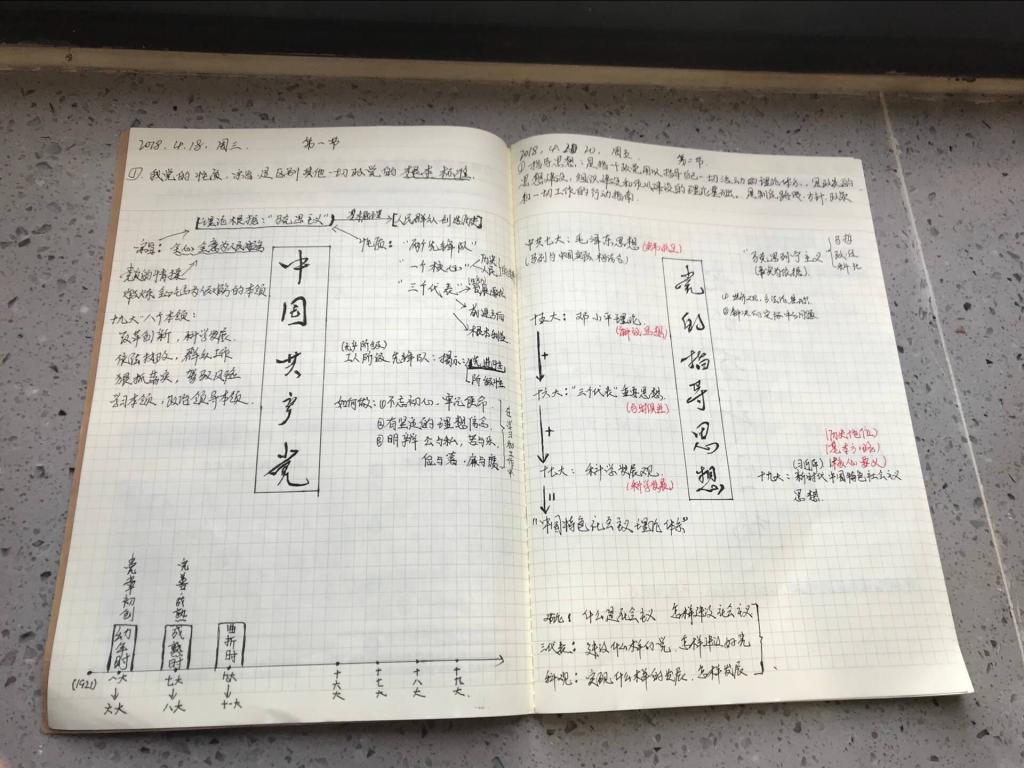 2018.4.18. 周三. 第一节
① 我党的性质、宗旨是区别其他一切政党的根本标准.
理论根据:"马克思主义" 人民群众创造历史
宗旨:
性质:"两个先锋队"
"一个核心"
"三个代表"
前进方向
根本利益
党的情操
本领
十九大"八个本领:
改革创新,科学发展.
依法执政,群众工作
狠抓落实,驾驭风险
学习本领,政治领导本领.
中国共产党
工人阶级先锋队:揭示: 先进性
阶级性
如何做:①不忘初心,牢记使命
②有坚定的理想信念
③明辨 公与私,苦与乐,
俭与奢.廉与腐
在学习和工作中
党章初创
完善成熟
幼年时
成熟时
曲折时
(1921)
一大
↓
六大
七大
↓
八大
九大
↓
十一大
十六大
十七大
十八大
十九大
2018.4. 20. 周五. 第二节
① 指导思想:是指一个政党用以指导自己一切活动的理论体系,是政党的
思想建设,组织建设和作风建设的理论基础,是制定路线、方针、政策
和一切工作的行动指南.
中共七大:毛泽东思想
(马列与中国实际相结合)
党的指导思想
"马克思列宁主义
马哲
政经
科社
十五大:邓小平理论
(解放思想)
+
十六大:"三个代表"重要思想.
(与时俱进)
+
十七大:科学发展观.
(科学发展)
"中国特色社会主义理论体系"
历史地位
核心要义
(习近平)
十九大:新时代中国特色社会主义
思想.
邓论:什么是社会主义 怎样建设社会主义
三代表:建设什么样的党,怎样建设的党
科观:实现什么样的发展.怎样发展